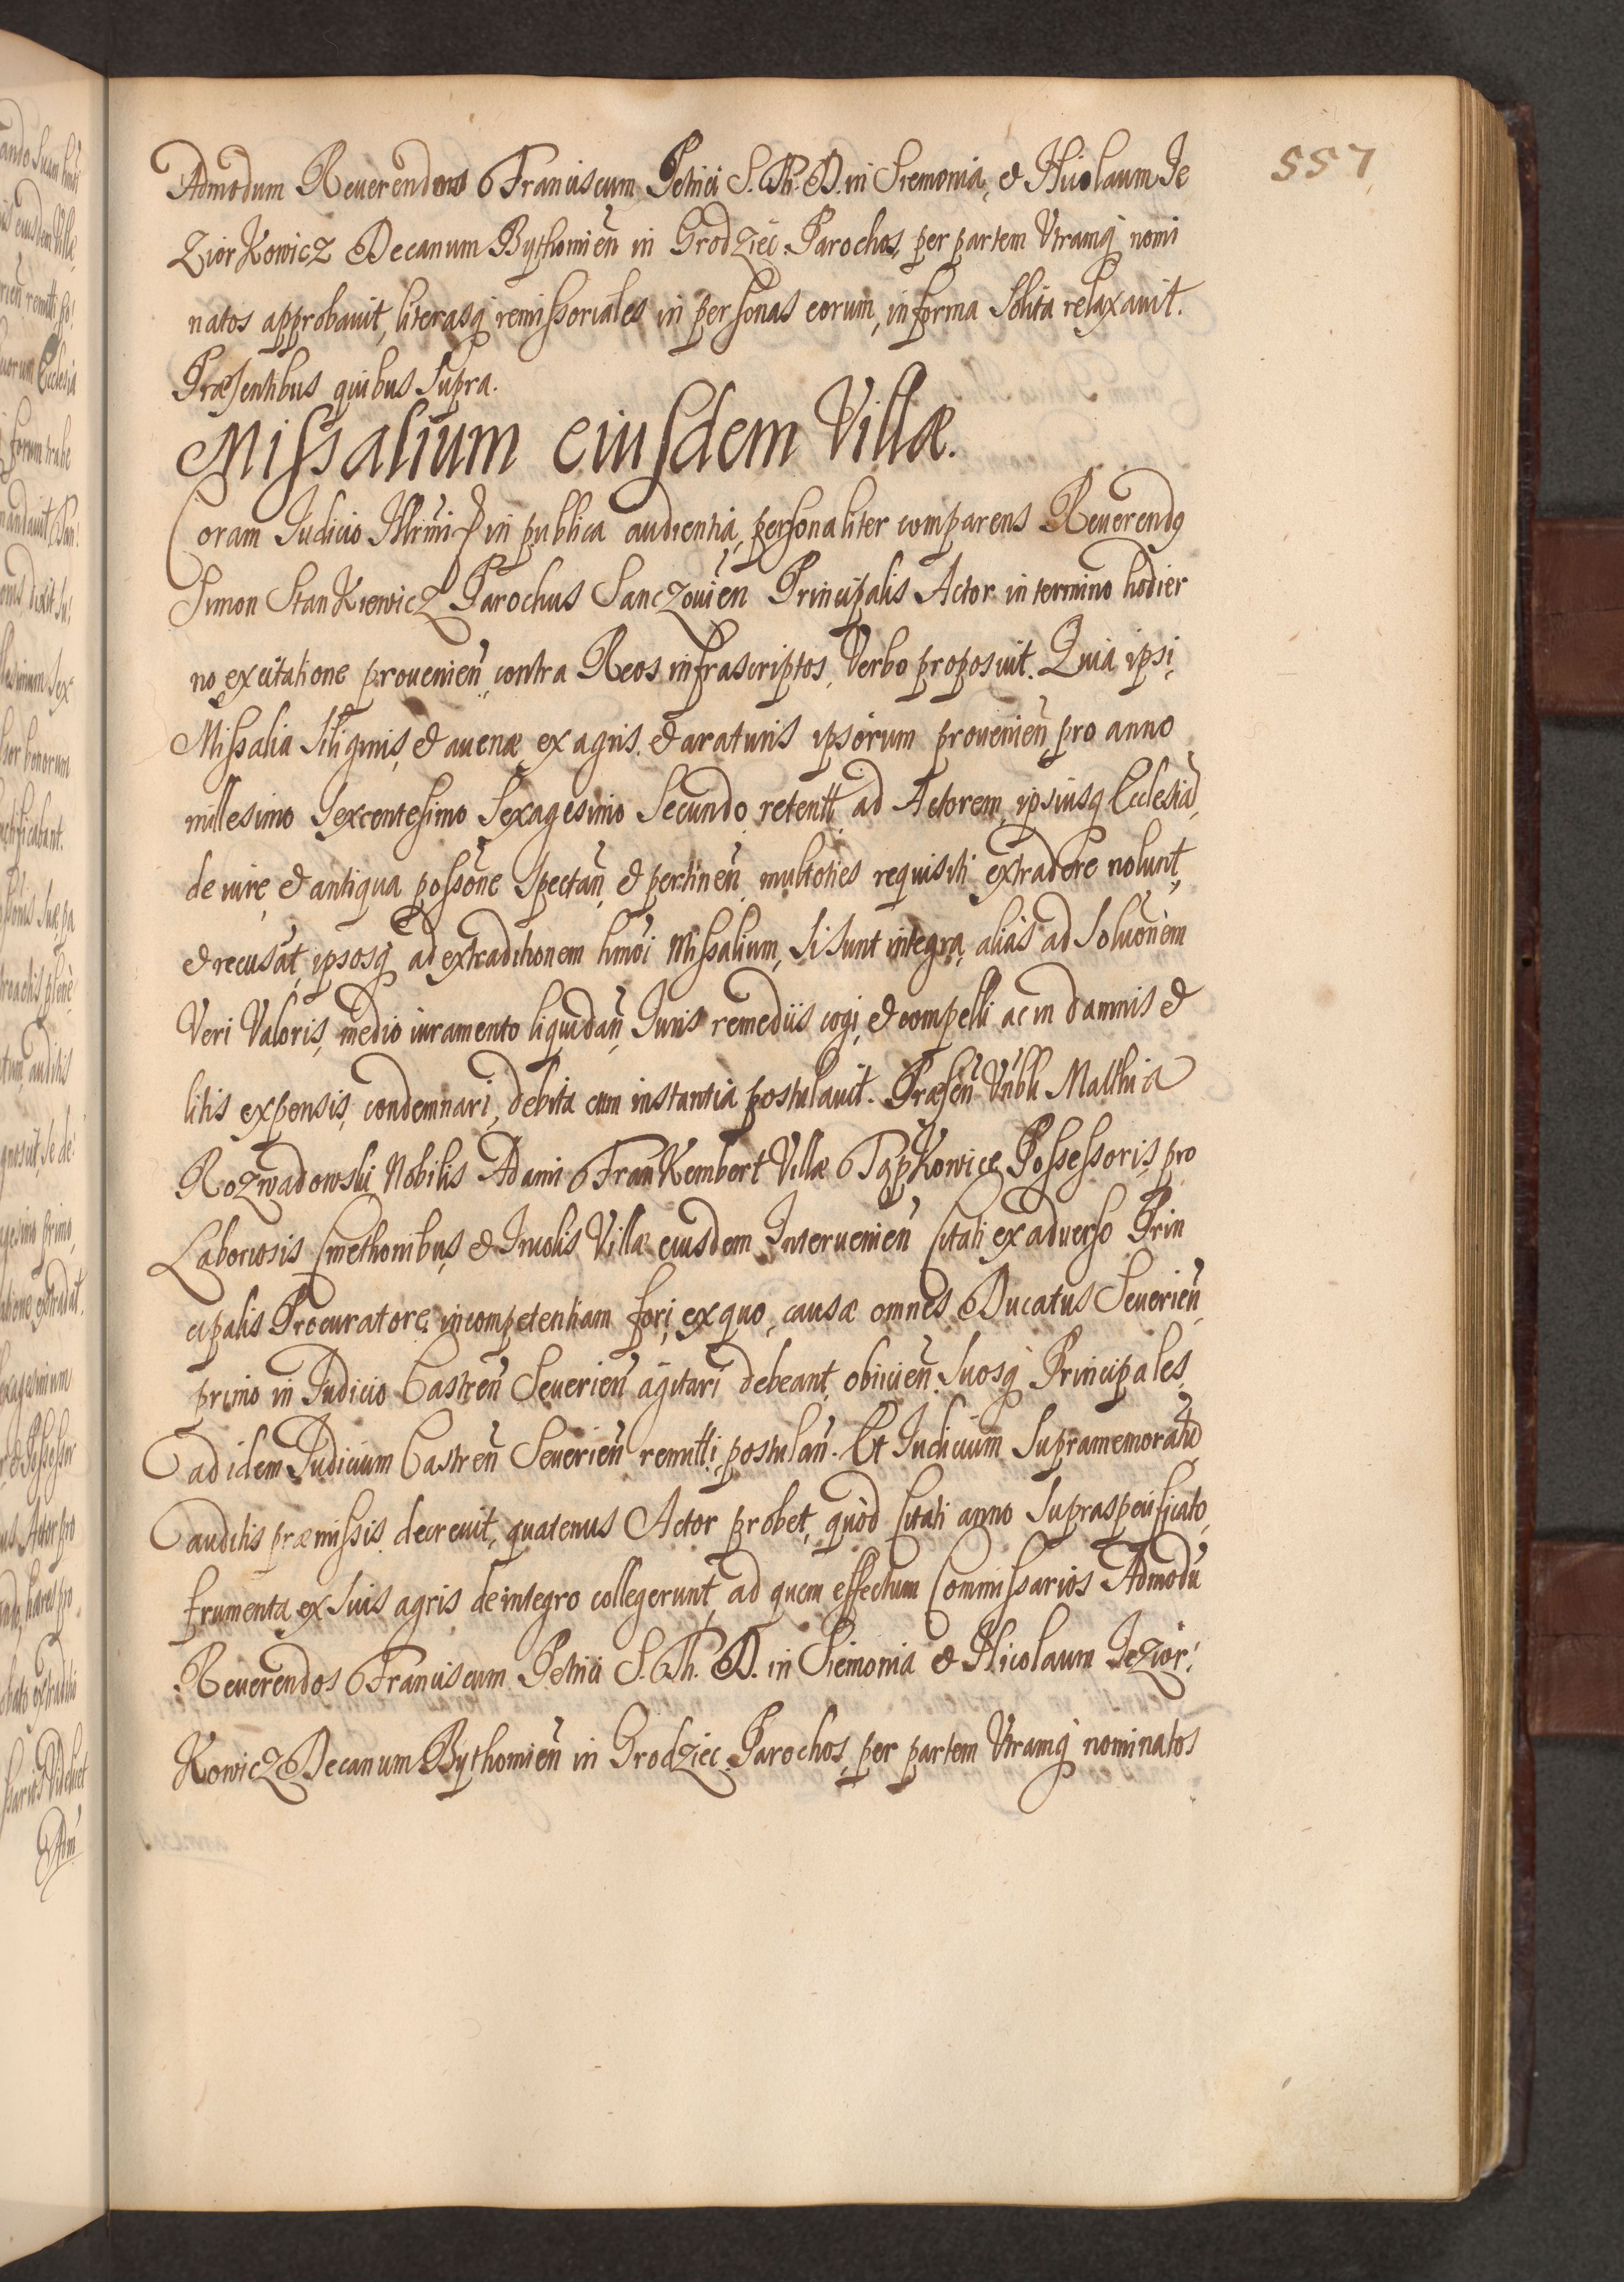 557
Admodum Reuerendos Franciscum Petrici S. Th. D. in Siemonia, & Nicolaum Je
ziorkowicz Decanum Bythomien̄ in Grodziec Parochos, per partem Vtramq́ nomi
natos approbauit, literasq́ remissoriales in personas eorum, in forma solita relaxauit.
Præsentibus quibus supra.
Missalium eiusdem Villæ.
Coram Judicio Illrimi P in publica audientia, personaliter comparens Reuerendꝯ
Simon Stankiewicz Parochus Sanczouien̄ Principalis Actor in termino hodier
no, ex citatione prouenien̄, contra Reos infrascriptos, Verbo proposuit. Quia ipsi,
Missalia siliginis, & auenæ ex agris & araturis ipsorum prouenien̄, pro anno
millesimo sexcentesimo sexagesimo secundo retentt ad Actorem, ipsiusq́ Ecclesiā,
de iure & antiqua possōne spectan̄, & pertinen̄ multoties requisiti extradere nolunt,
& recusāt, ipsosq́ ad extraditionem hmōi Missalium, si sunt integra, alias ad soluōnem
Veri Valoris, medio iuramento liquidan̄, Juris remediis cogi, & compelli ac in damnis &
litis expensis, condemnari, debita cum instantia postulauit. Præsen̄ Vrbli Matthia
Rozwadowski, Nobilis Adami Frankembert Villæ Tąpkowice Possessoris, pro
Laboriosis Cmethonibus, & Incolis Villæ eiusdem Interuenien̄ Citati ex aduerso Prin
cipalis Procuratore, incompetentiam fori, ex quo, causæ omnes Ducatus Seuerien̄,
primo in Judicio Castren̄ Seuerien̄ agitari debeant, obiicien̄, suosq́ Principales,
ad idem Judicium Castren̄ Seuerien̄ remitti, postulan̄. Et Judicium supramemoratū
auditis præmissis decreuit, quatenus Actor probet, quòd Citati anno supraspecificato,
frumenta ex suis agris de integro collegerunt, ad quem effectum Commissarios Admodū
Reuerendos Franciscum Petrici S. Th. D. in Siemonia & Nicolaum Jezior:
kowicz Decanum Bythomien̄ in Grodziec Parochos, per partem Vtramq́ nominatos